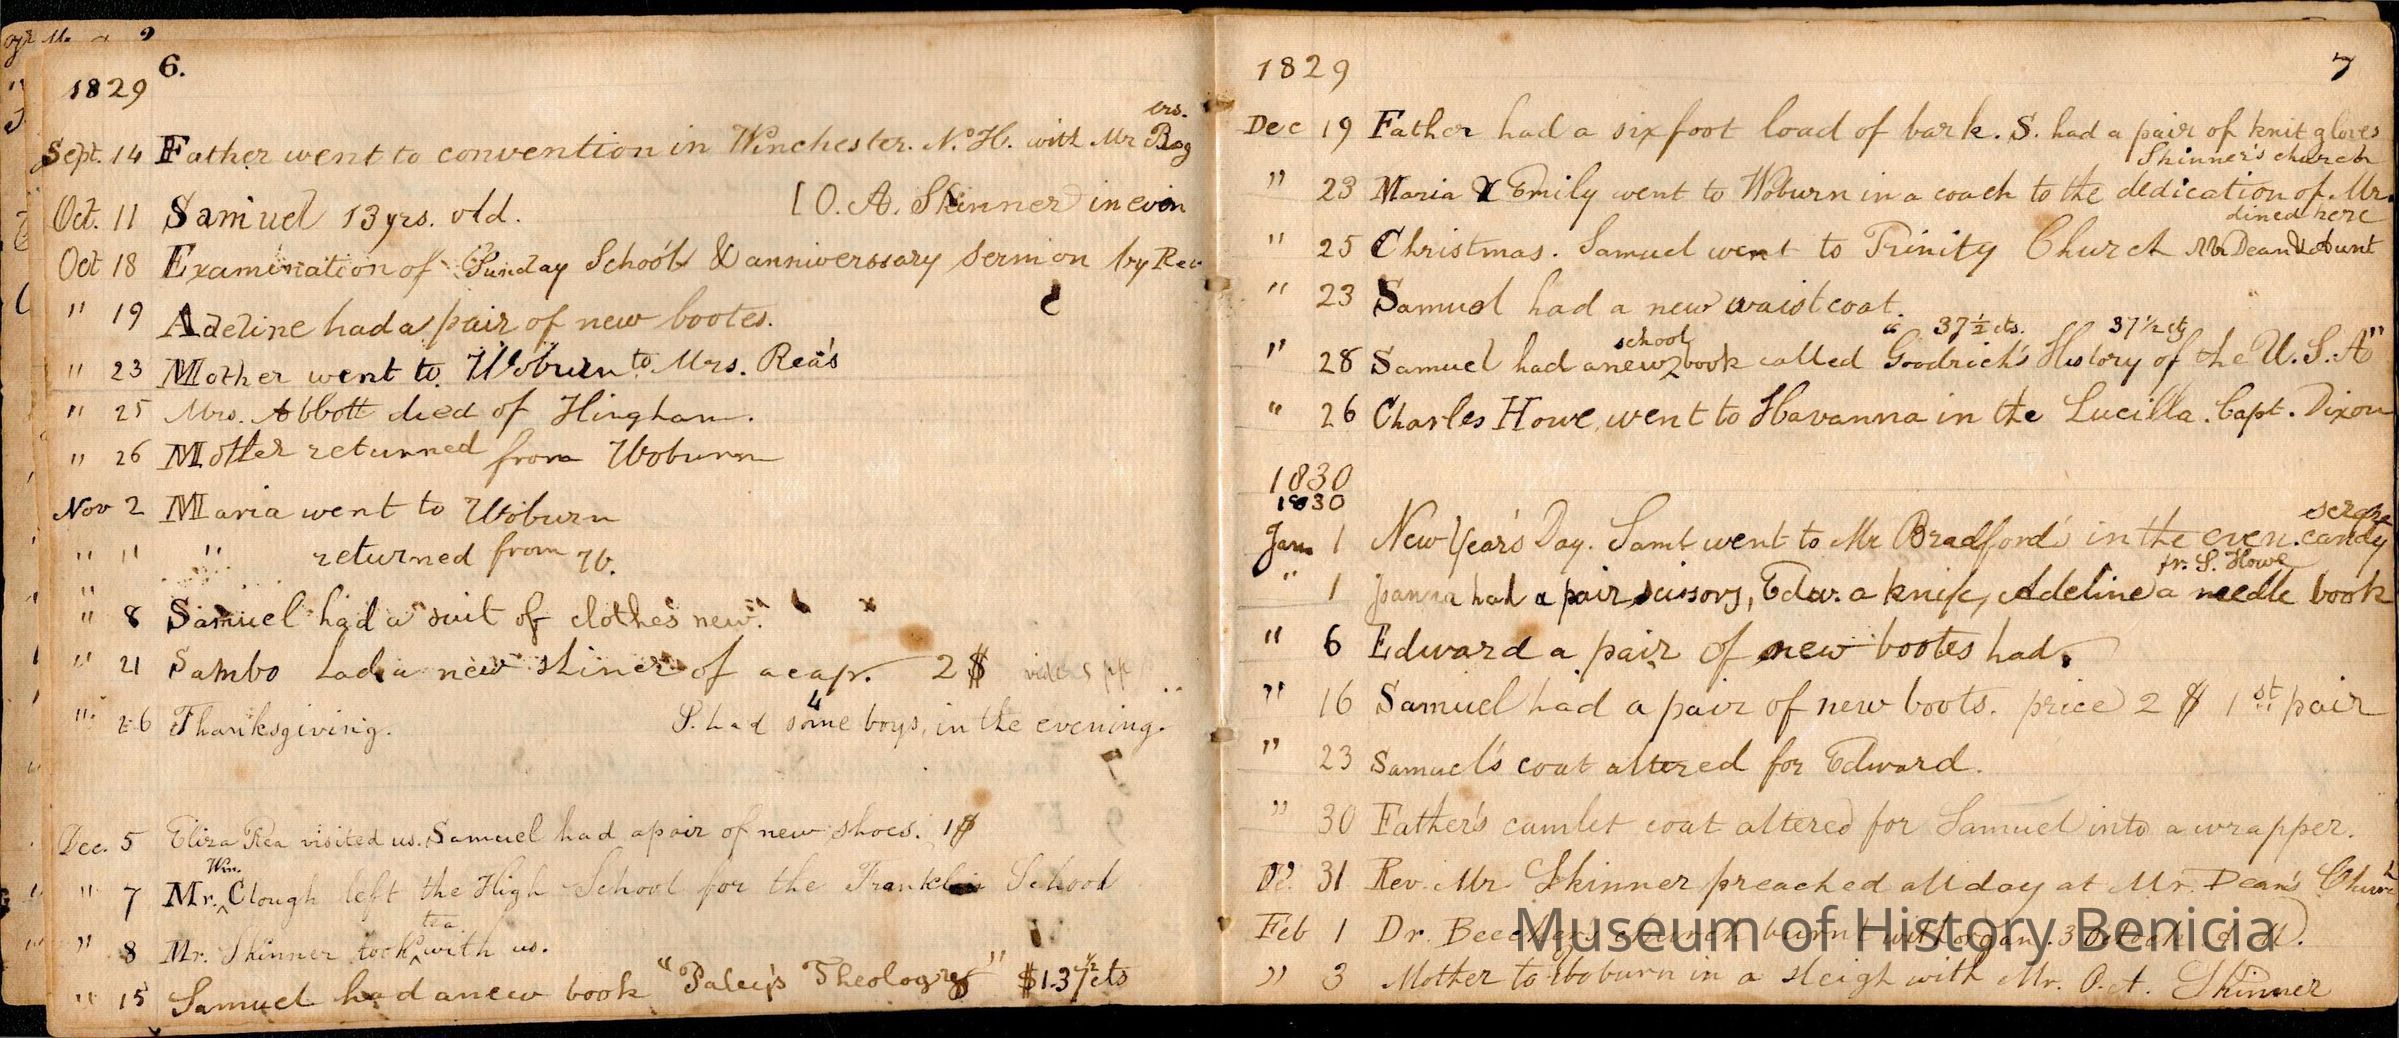 6.
1829
Sept. 14 Father went to convention in Winchester. N. H. with Mr Rog
ers.
Oct. 11 Samuel 13 yrs. old. [O. A. Skinner in even
Oct 18 Examination of Sunday School & anniversary sermon by Rev
" 19 Adeline had a pair of new bootes.
" 23 Mother went to Woburn to Mrs. Rea's
" 25 Mrs. Abbott died of Hingham.
" 26 Mother returned from Woburn
Nov 2 Maria went to Woburn
" " " returned from W.
" 8 Samuel had a suit of clothes new.
" 21 Sambo had a new shiner of a cap. 2 $
" 26 Thanksgiving. S. had 4 some boys, in the evening.
Dec. 5 Eliza Rea visited us. Samuel had a pair of new shoes. 1$
" 7 Mr. Wm. Clough left the High School for the Franklin School
" 8 Mr. Skinner took tea with us.
" 15 Samuel had a new book "Paley's Theology" $1.37½cts
7
1829
Dec 19 Father had a six foot load of bark. S. had a pair of knit gloves
" 23 Maria & Emily went to Woburn in a coach to the dedication of Mr.
Skinner's church
" 25 Christmas. Samuel went to Trinity Church Mr Dean & Aunt
dined here
" 23 Samuel had a new waistcoat.
" 28 Samuel had a new school book called "Goodrich's History of the U. S. A"
37½cts. 37½cts
" 26 Charles Howe went to Havanna in the Lucilla. Capt. Dixon
1830
1830
Jan 1 New Year's Day. Saml went to Mr Bradford's in the even. candy
" 1 Joanna had a pair scissors, Edw. a knife, Adeline a needle book
fr. S. Howe
" 6 Edward a pair of new bootes had.
" 16 Samuel had a pair of new boots. price 2 $ 1st pair
" 23 Samuel's coat altered for Edward.
" 30 Father's camlet coat altered for Samuel into a wrapper.
Do. 31 Rev. Mr Skinner preached all day at Mr. Dean's Church
Feb 1 Dr. Beecher's church burnt with organ. 3 o'clock
" 3 Mother to Woburn in a sleigh with Mr. O. A. Skinner
Museum of History Benicia